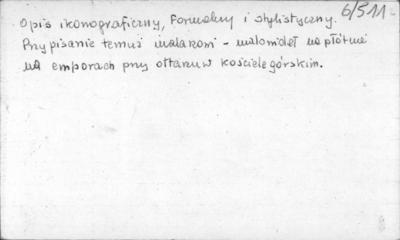 6/511
Opis ikonograficzny, formalny i stylistyczny.
Przypisanie temuż malarzowi - malowideł na płótnie
na emporach przy ołtarzu w kościele górskim.